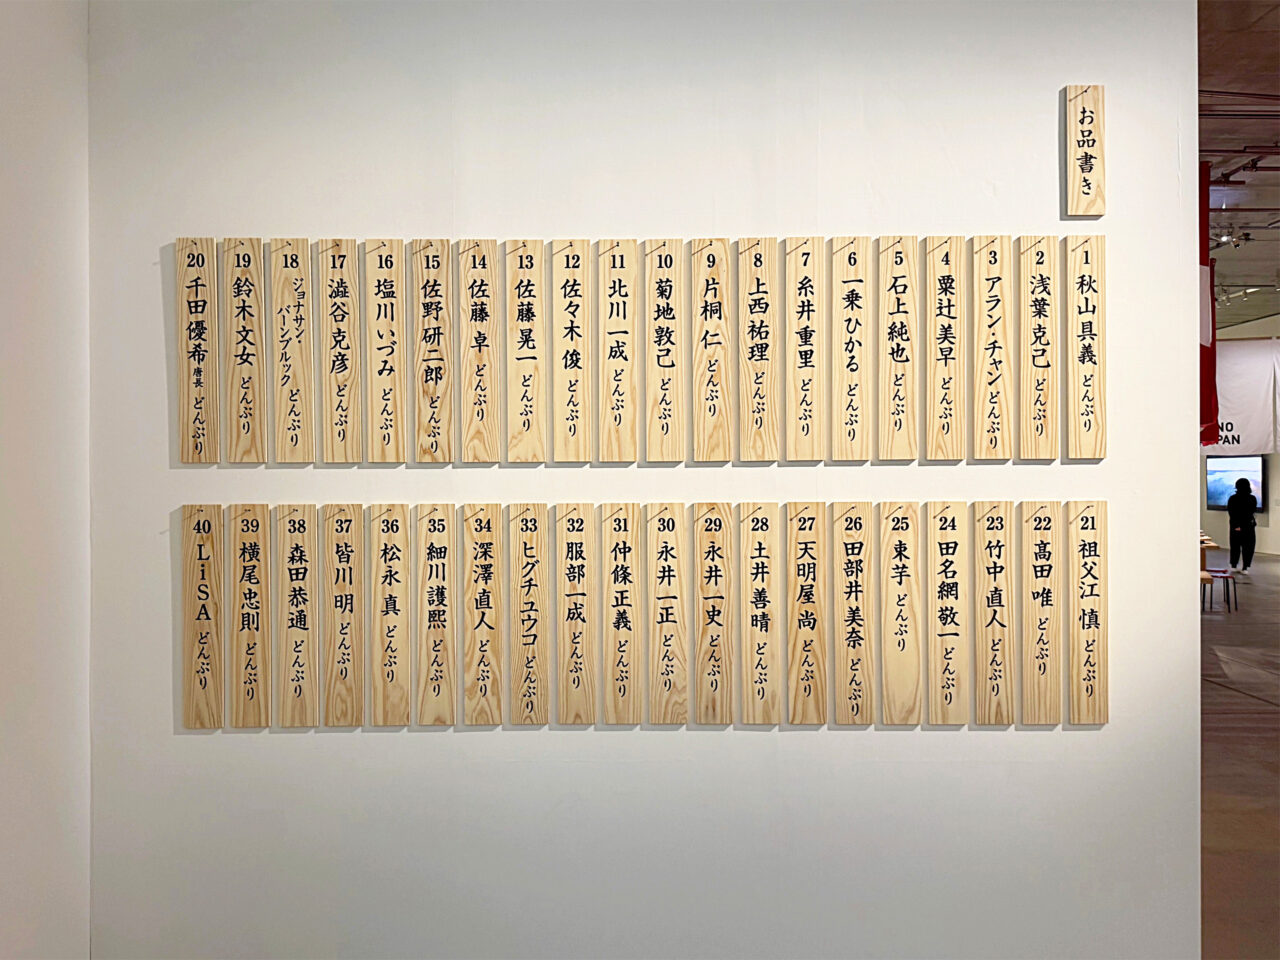 お品書き
1 秋山具義 どんぶり
2 浅葉克己 どんぶり
3 アラン・チャン どんぶり
4 粟辻美早 どんぶり
5 石上純也 どんぶり
6 一乗ひかる どんぶり
7 糸井重里 どんぶり
8 上西祐理 どんぶり
9 片桐仁 どんぶり
10 菊地敦己 どんぶり
11 北川一成 どんぶり
12 佐々木俊 どんぶり
13 佐藤晃一 どんぶり
14 佐藤卓 どんぶり
15 佐野研二郎 どんぶり
16 塩川いづみ どんぶり
17 澁谷克彦 どんぶり
18 ジョナサン・バーンブルック どんぶり
19 鈴木文女 どんぶり
20 千田優希 唐長 どんぶり
21 祖父江慎 どんぶり
22 髙田唯 どんぶり
23 竹中直人 どんぶり
24 田名網敬一 どんぶり
25 束芋 どんぶり
26 田部井美奈 どんぶり
27 天明屋尚 どんぶり
28 土井善晴 どんぶり
29 永井一史 どんぶり
30 永井一正 どんぶり
31 仲條正義 どんぶり
32 服部一成 どんぶり
33 ヒグチユウコ どんぶり
34 深澤直人 どんぶり
35 細川護熙 どんぶり
36 松永真 どんぶり
37 皆川明 どんぶり
38 森田恭通 どんぶり
39 横尾忠則 どんぶり
40 LiSA どんぶり
NO
PAN